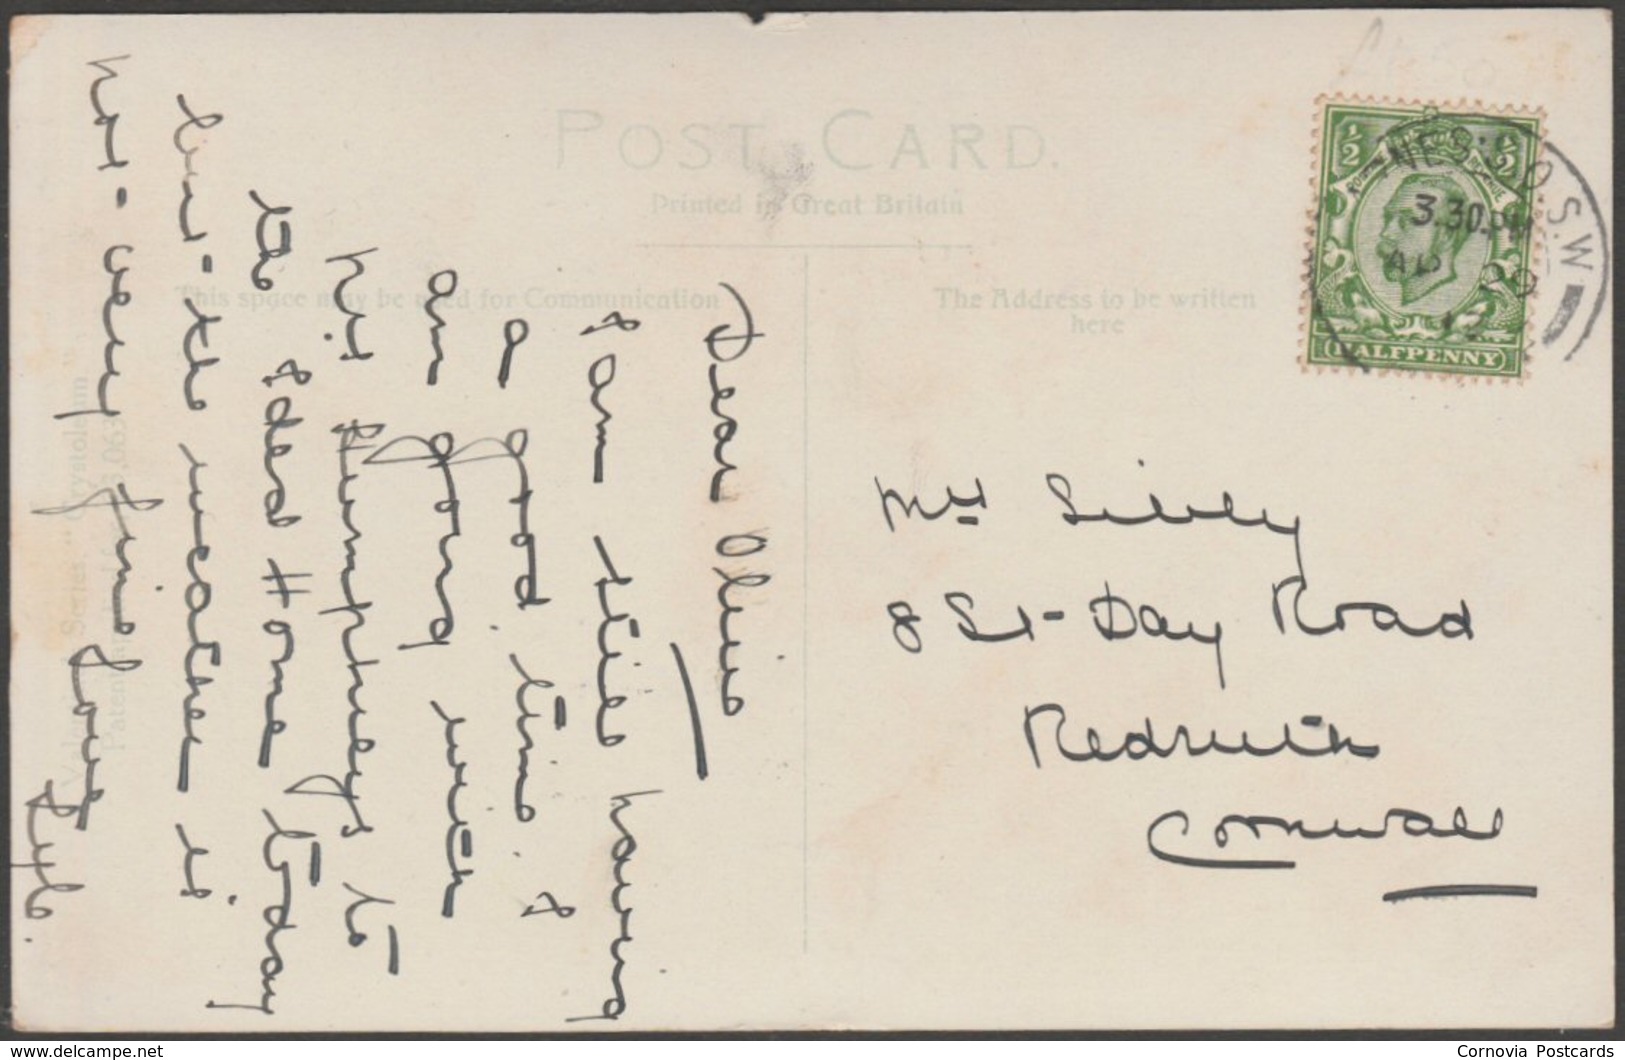 POST CARD.
Printed in Great Britain
This space may be used for Communication
The Address to be written
here
Dear Olive
I am still having
a good time. I
am going with
Mrs Humphreys to
the Ideal Home today
but the weather is
not very fine Love
Mrs Sibly
8 St Day Road
Redruth
Cornwall
½ ½
HALFPENNY
S.W
3.30.PM
AP 29
12
Series "Crystoleum"
Cornovia Postcards
delcampe.net